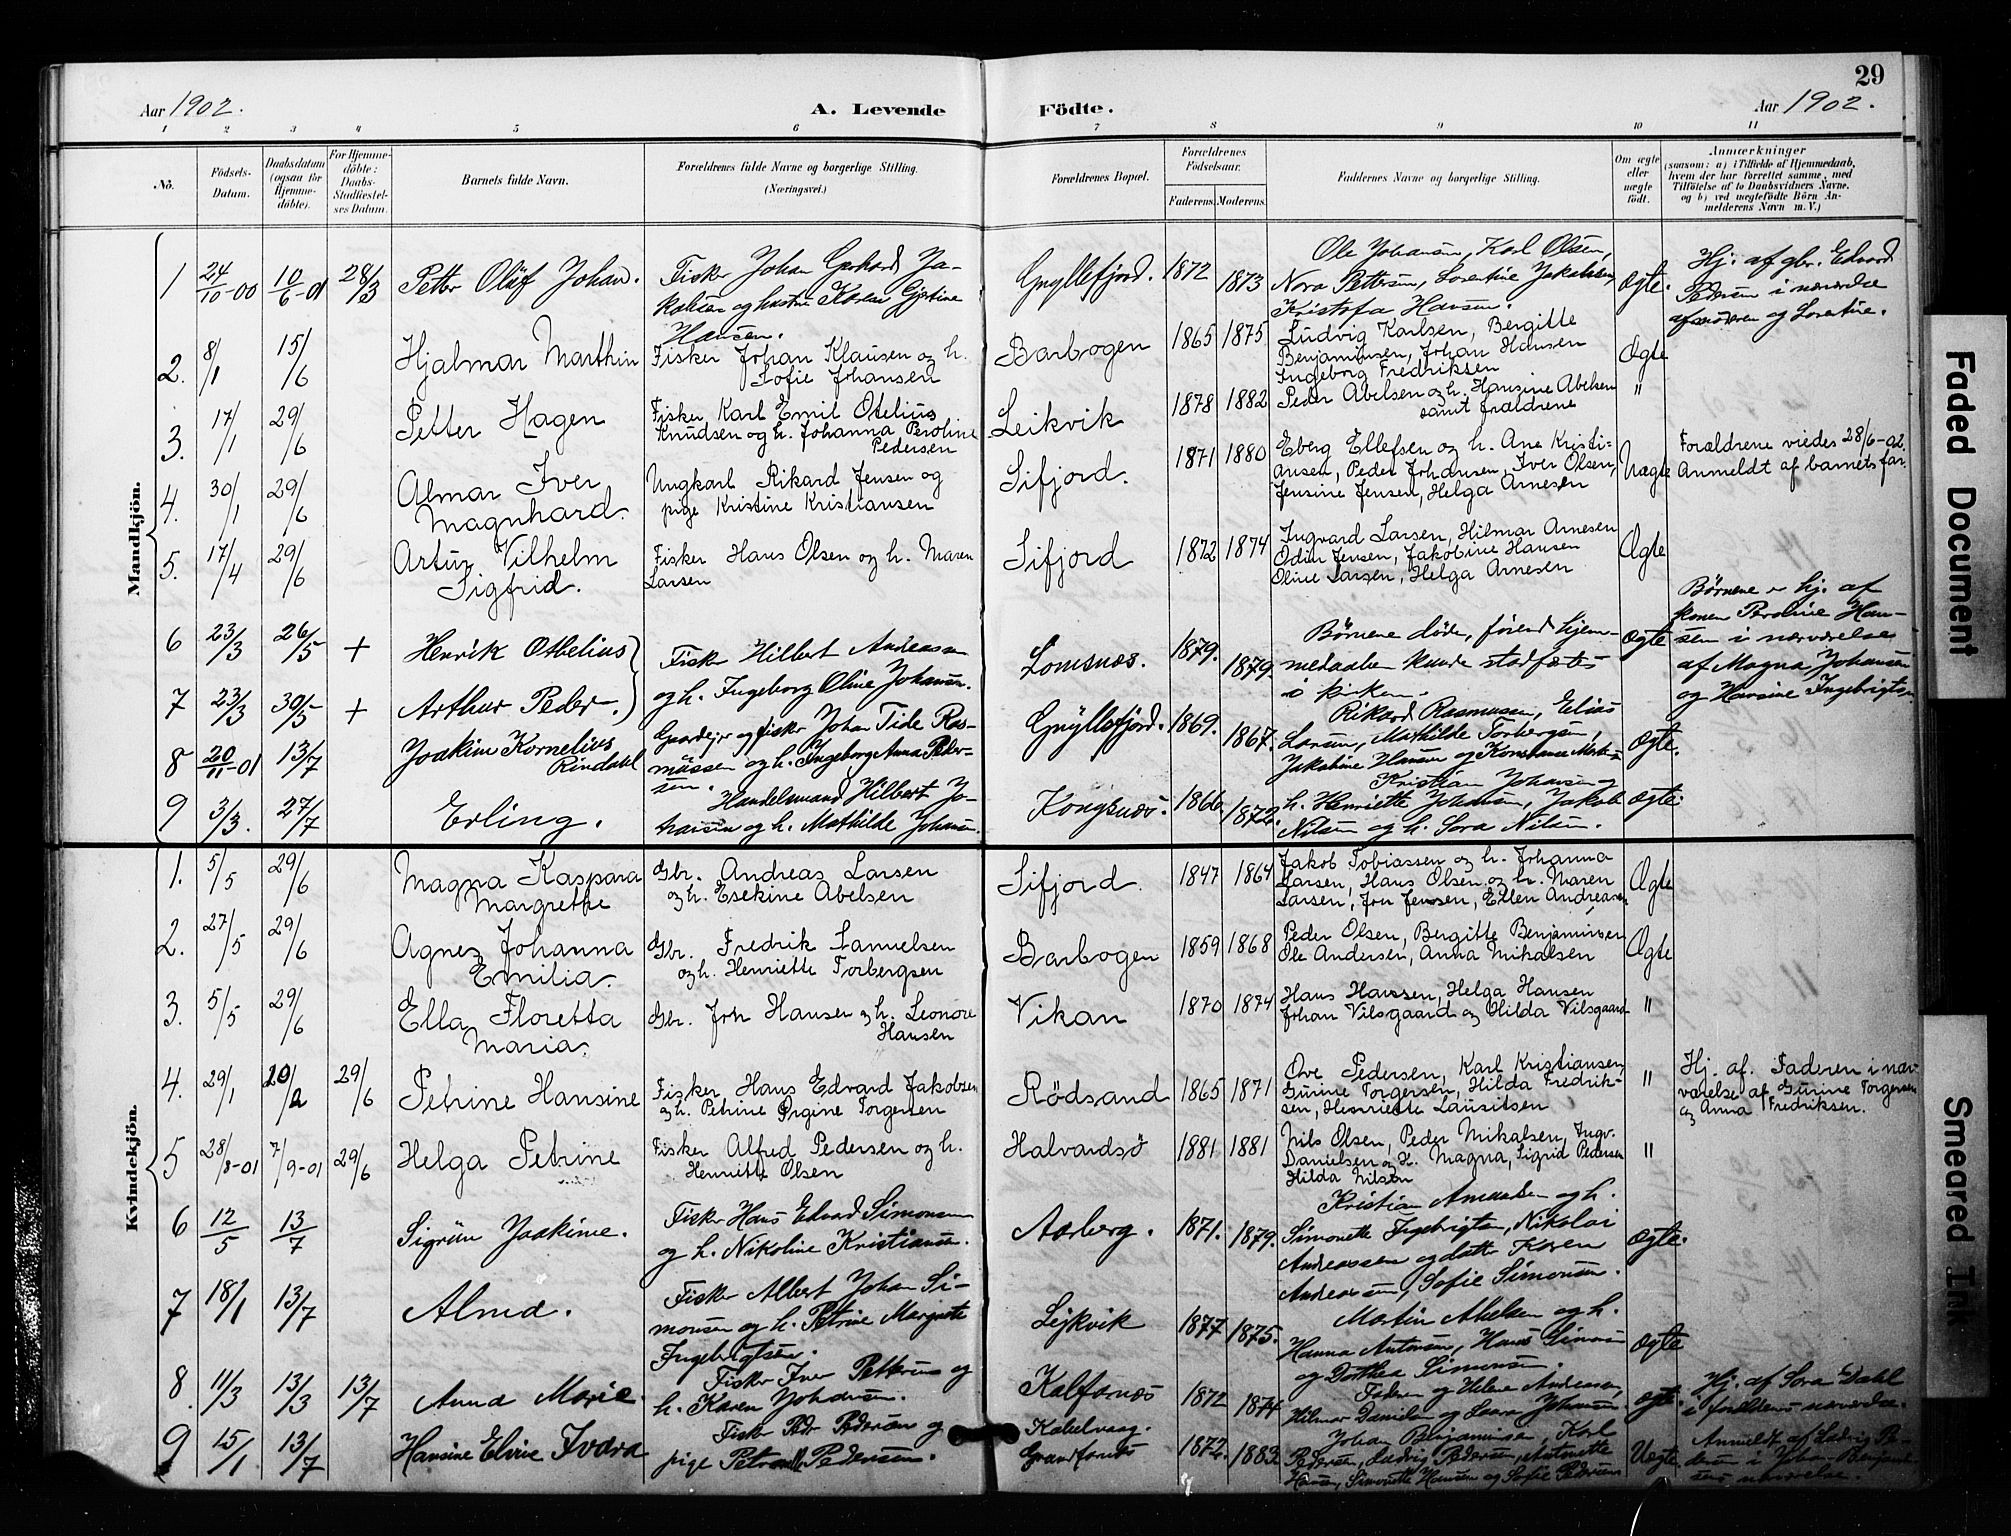 29
Aar 1902.
A. Levende Födte.
Aar 1902.
1 2 3 4 5 6 7 8 9 10 11
No.
Födsels-Datum.
Daabsdatum (ogsaa for Hjemme-döbte).
For Hjemme-döbte: Daabs-Stadfæstel-ses Datum.
Barnets fulde Navn.
Forældrenes fulde Navne og borgerlige Stilling. (Næringsvei.)
Forældrenes Bopæl.
Forældrenes Födselsaar.
Faderens. Moderens.
Faddernes Navne og borgerlige Stilling.
Om ægte eller uægte født.
Anmærkninger
(saasom: a) i Tilfælde af Hjemmedaab,
hvem der har forrettet samme, med
Tilföielse af to Daabsvidners Navne,
og b) ved uægtefödte Börn An-
melderens Navn m. V.)
Mandkjön.
1 24/10-00 10/6-01 28/3 Petter Oluf Johan. Fisker Johan Gerhard Ja-
kobsen og hustru Karen Gjertine
Hansen.
Gryllefjord. 1872 1873
Ole Johansen, Karl Olsen,
Nora Pettersen, Lorentine Jakobsen,
Kristofa Hansen.
Ægte.
Hj. af gbr. Edvard
Pedersen i nærværelse
af moderen og Lorentine.
2. 8/1 15/6 Hjalmar Marthin Fisker Johan Klausen og h.
Sofie Johansen
Barbogen 1865 1875
Ludvig Karlsen, Bergitte
Benjaminsen, Johan Hansen
Ingeborg Fredriksen
Ægte
3. 17/1 29/6 Petter Hagen Fisker Karl Emil Otelius
Knudsen og h. Johanna Peroline
Pedersen
Leikvik 1878 1882
Peder Abelsen og h. Hansine Abelsen
samt forældrene
"
4. 30/1 29/6 Almar Iver
Magnhard.
Ungkarl Rikard Jensen og
pige Kristine Kristiansen
Sifjord. 1871 1880
Eberg Ellefsen og h. Ane Kristi-
ansen, Peder Johansen, Iver Olsen,
Jensine Jensen, Helga Arnesen
Uægte
Forældrene viedes 28/6-02
Anmeldt af barnets far.
5. 17/4 29/6 Artur Vilhelm
Sigfrid.
Fisker Hans Olsen og h. Maren
Larsen
Sifjord 1872 1874
Ingvard Larsen, Hilmar Arnesen
Odin Jensen, Jakobine Hansen
Oline Larsen, Helga Arnesen
Ægte
6 23/3 26/5 + Henrik Othelius
Fisker Hilbert Andreassen
og h. Ingeborg Oline Johansen.
Lomsnæs. 1879. 1879.
Børnene døde, førend hjem-
medaaben kunde stadfæstes
i kirken.
Ægte
Børnene er hj. af
konen Peroline Han-
sen i nærværelse
af Magna Johansen
og Hansine Ingebrigtsen
7 23/3 30/5 + Arthur Peder.
8 20/11-01 13/7 Joakim Kornelius
Rindahl
Gaardejer og fisker Johan Tide Ras-
mussen og h. Ingeborg Anna Peder-
sen.
Gryllefjord. 1869. 1867.
Rikard Rasmussen, Elias
Larsen, Mathilde Torbergsen,
Jakobine Hansen og Konstanse
Ægte.
9 3/3. 27/7 Erling.
Handelsmand Hilbert Jo-
hansen og h. Mathilde Johansen.
Kongsnæs. 1866 1872.
Kristian Johansen og
h. Henriette Johansen, Jakob
Nilsen og h. Sara Nilsen.
Ægte.
Kvindekjön.
1. 5/5 29/6 Magna Kaspara
Margrethe
Gbr. Andreas Larsen
og h. Esekine Abelsen
Sifjord. 1847 1864
Jakob Tobiassen og h. Johanna
Larsen, Hans Olsen og h. Maren
Larsen, Jon Jensen, Ellen Andreasen
Ægte
2. 27/5 29/6 Agnes Johanna
Emilia.
Gbr. Fredrik Samuelsen
og h. Henriette Torbergsen
Barbogen 1859 1868
Peder Olsen, Bergitte Benjaminsen
Ole Andersen, Anna Mikalsen
Ægte
3. 5/5 29/6 Ella Floretta
Maria.
Gbr. Jon Hansen og h. Leonore
Hansen
Vikan 1870 1874
Hans Hanssen, Helga Hansen
Johan Vilsgaard og Olilda Vilsgaard
"
4. 29/1 20/2 29/6 Petrine Hansine
Fisker Hans Edvard Jakobsen
og h. Petrine Ørgine Torgersen
Rödsand 1865 1871
Ove Pedersen, Karl Kristiansen
Gurine Torgersen, Hilda Fredrik-
sen, Henriette Lausitsen
"
Hj. af. Faderen i nær-
værelse af Gurine Torgersen
og Anna Fredriksen.
5 28/8-01 7/9-01 29/6 Helga Petrine
Fisker Alfred Pedersen og h.
Henriette Olsen
Halvardsö 1881 1881
Nils Olsen, Peder Mikalsen, Ingv.
Danielsen og H. Magna, Sigrid Pedersen
Hilda Nilsen
"
6 12/5 13/7 Sigrun Joakime.
Fisker Hans Edvard Simonsen
og h. Nikoline Kristiansen.
Aarberg. 1871. 1879.
Kristian Amundsen og h.
Simonette Ingebrigtsen, Nikolai
Andreassen og datter Karen
Andreassen, Sofie Simonsen.
Ægte.
7 18/1 13/7 Alma.
Fisker Albert Johan Si-
monsen og h. Petrine Margrete
Ingebrigtsen.
Lejkvik 1877 1875.
Martin Abelsen og h.
Hanna Antonsen, Hans Simonsen
og Dorthea Simonsen.
Ægte
8. 11/3 13/3 13/7 Anna Marie.
Fisker Iver Pettersen og
h. Karen Johansen.
Kalfarnæs 1872 1874
Faderen og Helene Andreasen,
Hilmar Danielsen og Laura Johansen
Ægt.
Hj. af Sara Dahl
i forældrenes nærværelse.
9 15/1 13/7 Hansine Elvine Ivara
Fisker Peder Pedersen og
pige Petronelle Pedersen.
Kabelvaag.
Grandfarnæs 1872. 1883
Johan Benjaminsen, Karl
Pedersen, Ludvig Pedersen, Antonette
Hansen, Simonette Hansen og Sofie Pedersen
Uægte
Anmeldt af Ludvig Pe-
dersen i Johan Benjamin-
sens nærværelse.
Faded Document
Smeared Ink